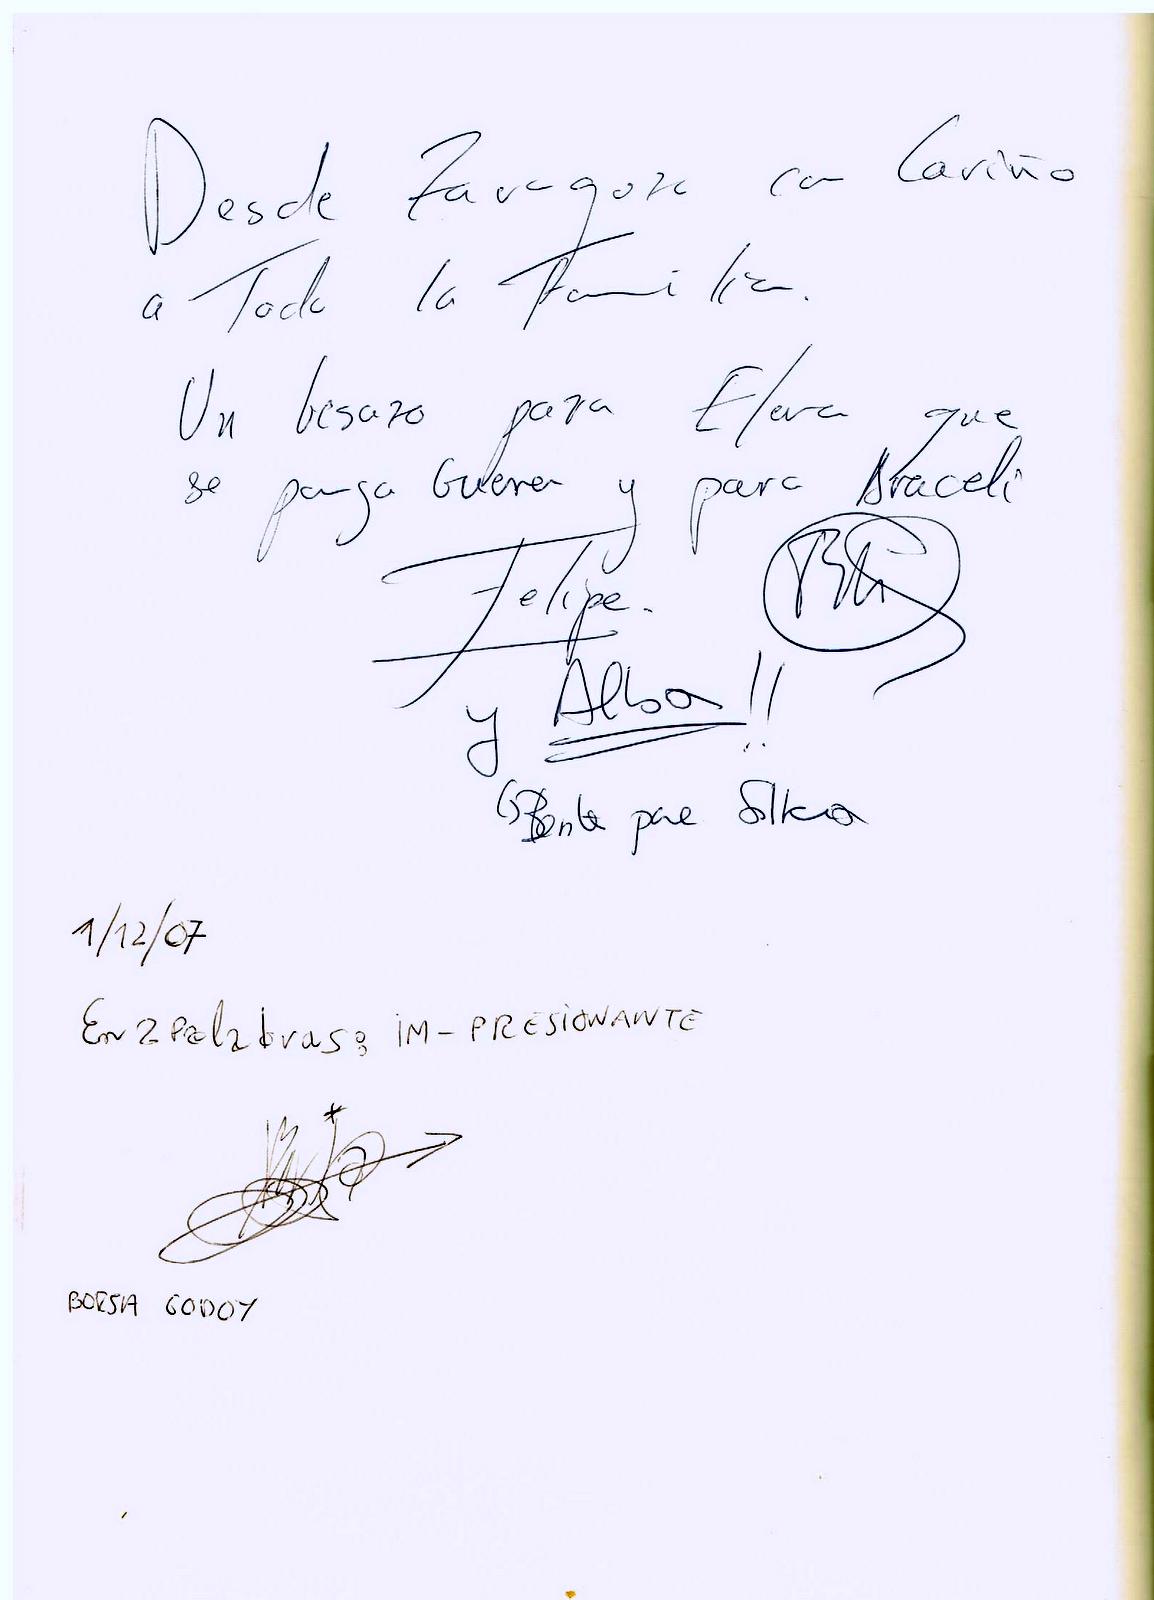 Desde Zaragoza con Cariño
a Toda la Familia.
Un besazo para Elena que
se ponga buena y para Araceli
Felipe.
y Alba!!
1/12/07
En 2 palabras: iM-PRESiONANTE
BORJA GODOY